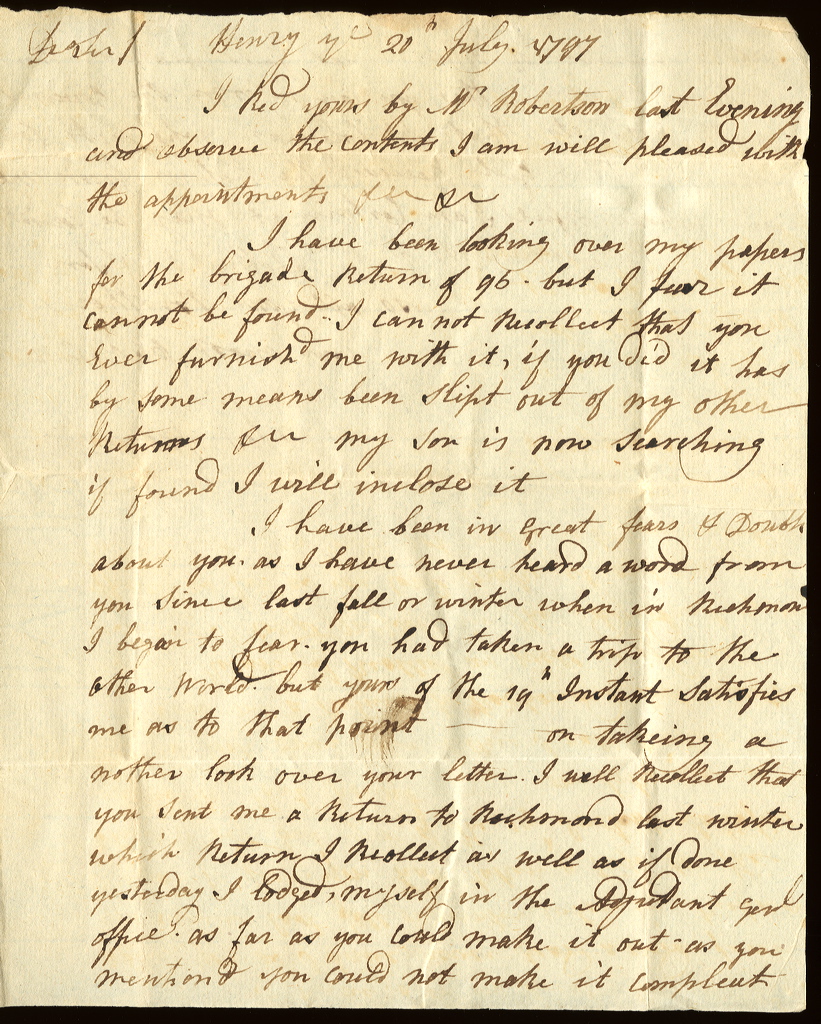 Dr Sir / Henry ye 20th July. 1797
I Recd yours by Mr Robertson last Evening
and observe the contents I am will pleased with
the appointments &c &c
I have been looking over my papers
for the brigade Return of 96. but I fear it
cannot be found.. I cannot Recollect that you
Ever furnishd me with it, if you did it has
by some means been slipt out of my other
Returns &c my son is now searching
if found I will inclose it
I have been in great fears & Doubts
about you. as I have never heard a word from
you since last fall or winter when in Richmond
I began to fear. you had taken a trip to the
other World. but yours of the 19th Instant Satisfies
me as to that point — on takeing a
nother look over your letter. I well Recollect that
you sent me a Return to Richmond last winter
which Return I Recollect as well as if done
yesterday I lodged, myself in the Adjutant Genl
office. as far as you could make it out - as you
mentiond you could not make it compleat